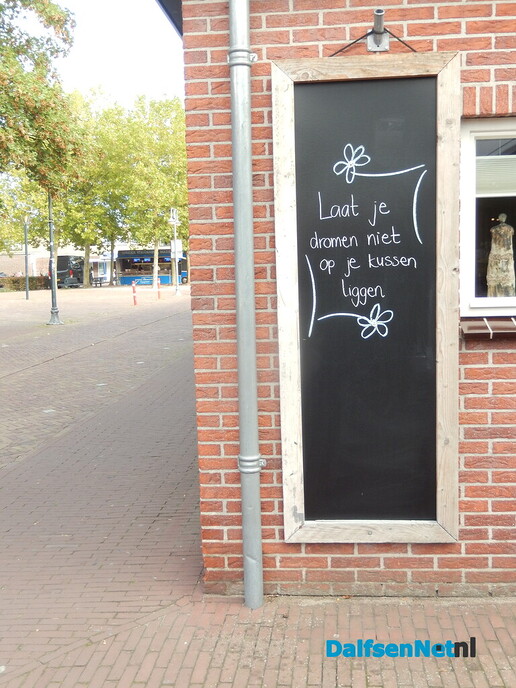 Laat je
dromen niet
op je kussen
liggen
DalfsenNet.nl